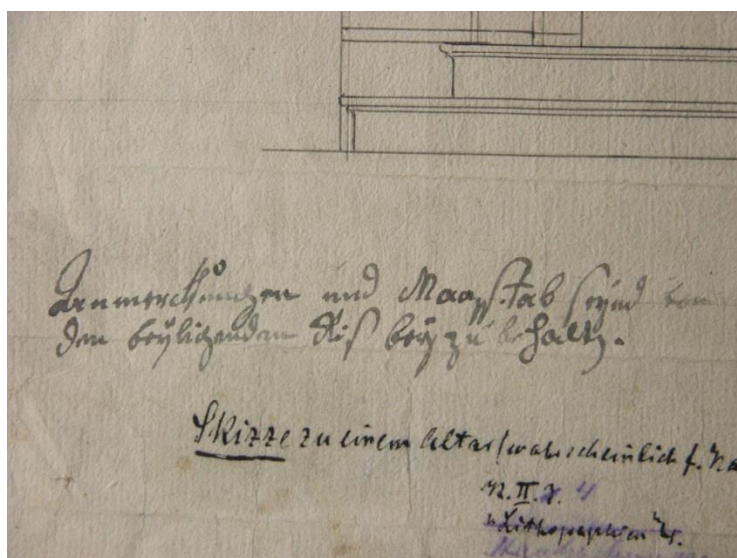 Anmerckungen und Maaßstab seynd von
den beyligenden Riß bey zu behaltn.
Skizze zu einem Altar (wahrscheinlich f.
N. II. 4
"Lithographien"